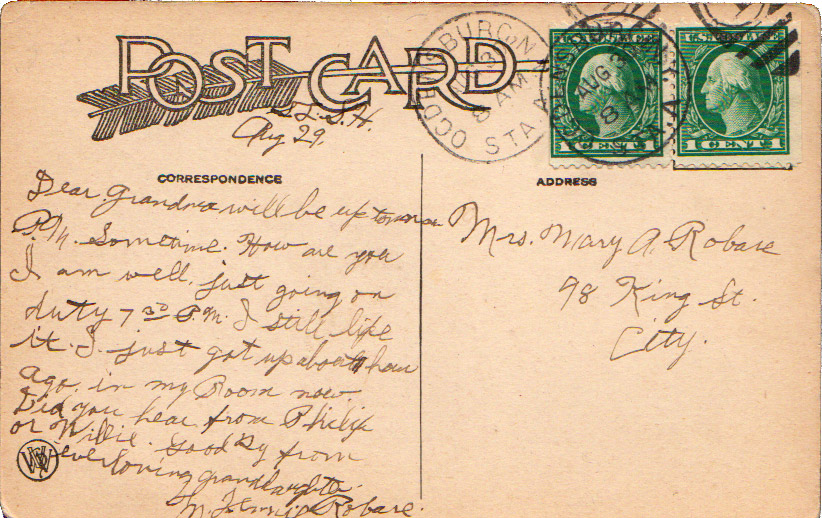 POST CARD
St. L. S. H.
Aug 29.
CORRESPONDENCE
Dear Grandma will be up tomor
P.M. Sometime. How are you
I am well. just going on
duty 7 30 P.M. I still like
it. I just got up about hour
ago. in my Room now.
Did you hear from Philip
or Willie. Good By from
ever loving grandaughter
M. Robare.
OGDENSBURG N.Y.
AUG 3
8 AM
STA. A
OGDENSBURG N.Y.
AUG 3
8 AM
STA. A
U.S. POSTAGE
1 CENT 1
U.S. POSTAGE
1 CENT 1
ADDRESS
Mrs. Mary A. Robare
98 King St.
City.